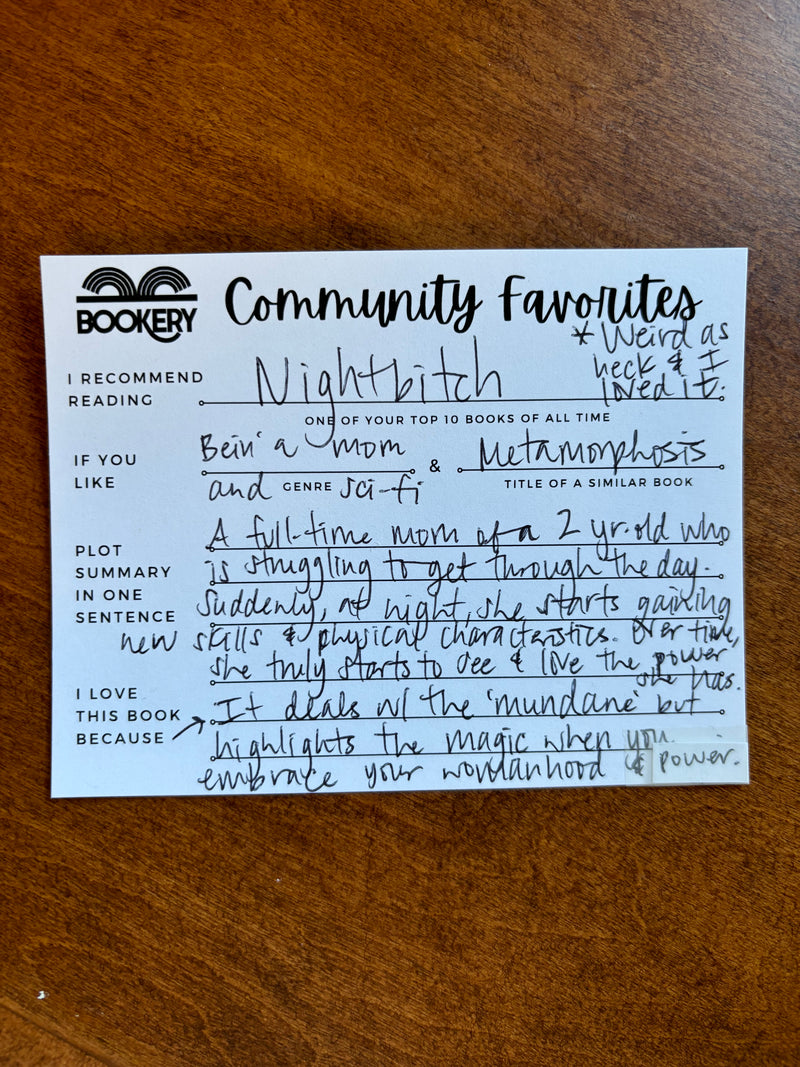 BOOKERY
Community Favorites
* Weird as
heck & I
loved it.
I RECOMMEND
READING
Nightbitch
ONE OF YOUR TOP 10 BOOKS OF ALL TIME
IF YOU
LIKE
Bein' a mom
and sci-fi
GENRE
&
Metamorphosis
TITLE OF A SIMILAR BOOK
PLOT
SUMMARY
IN ONE
SENTENCE
A full-time mom of a 2 yr. old who
is struggling to get through the day.
Suddenly, at night, she starts gaining
new skills & physical characteristics. Over time,
she truly starts to see & love the power
she has.
I LOVE
THIS BOOK
BECAUSE
It deals w/ the 'mundane' but
highlights the magic when you
embrace your womanhood & power.